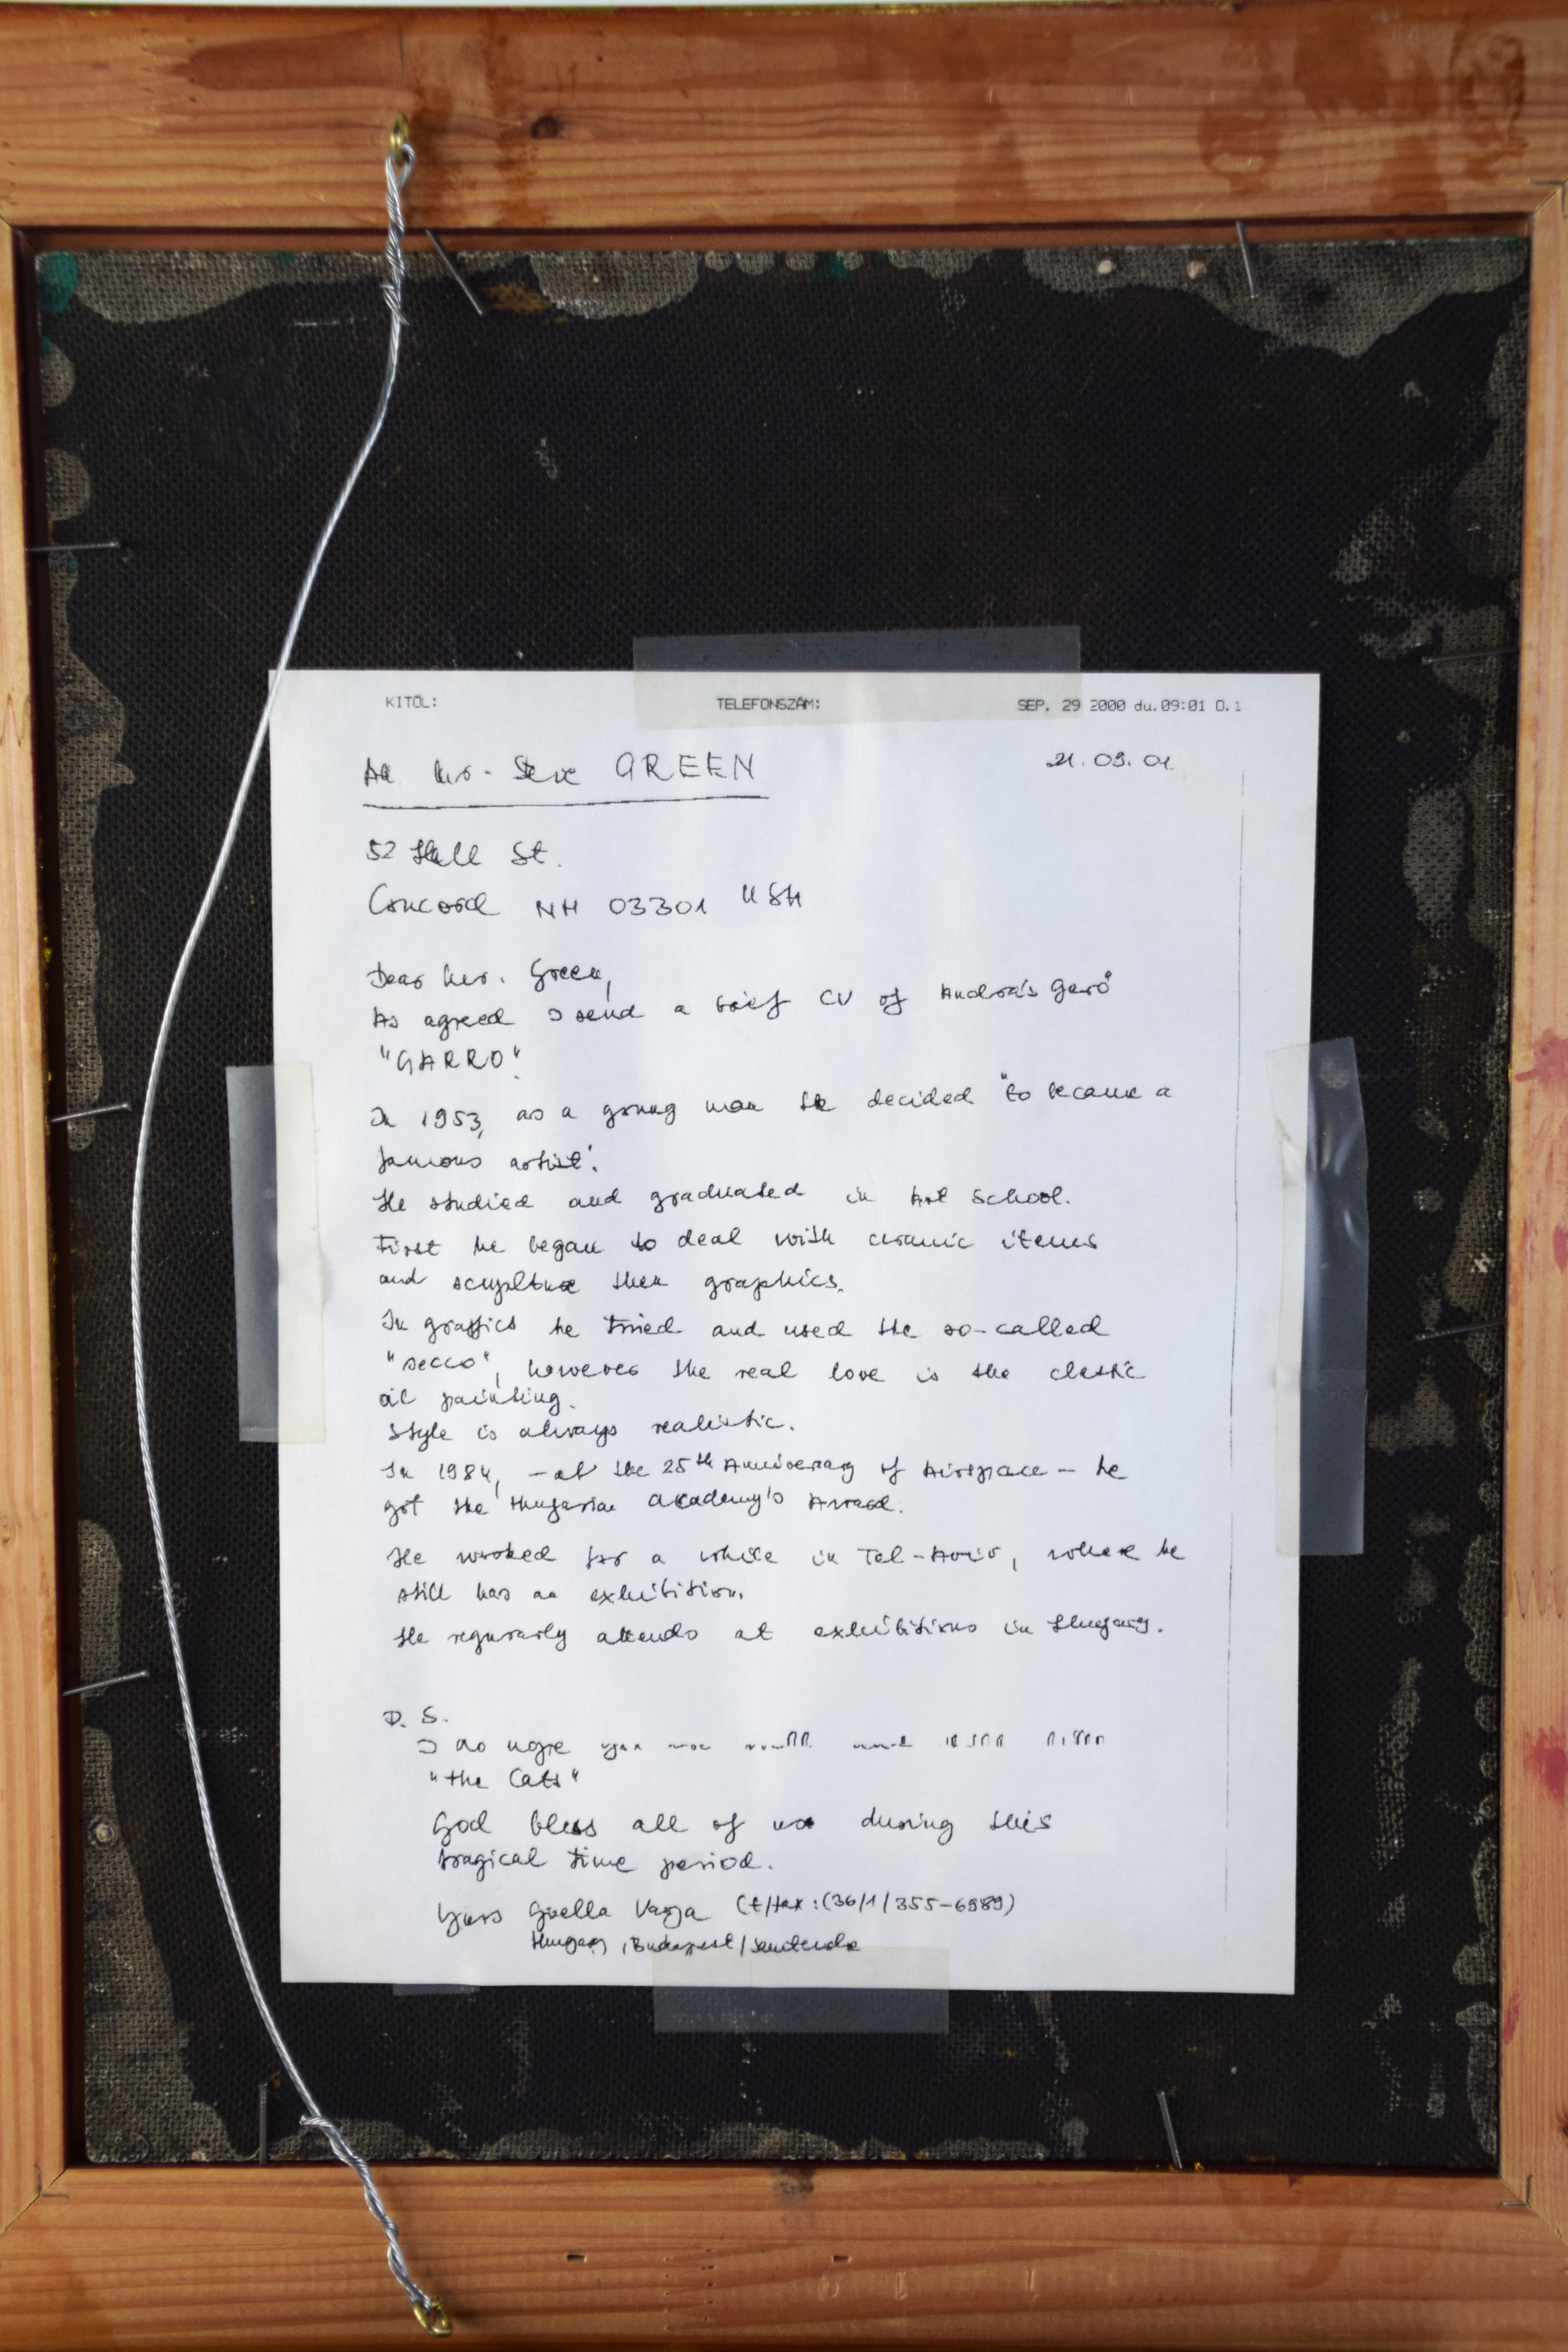 KITÖL: TELEFONSZÁM: SEP. 29 2000 du.09:01 O.1
Mr. Steve GREEN 21.09.01
52 Hall St.
Concord NH 03301 USA
Dear Mr. Green,
As agreed I send a brief CV of András Gerő
"GARRO".
In 1953, as a young man he decided "to became a
famous artist".
He studied and graduated in Art School.
First he began to deal with ceramic items
and sculpture then graphics.
In graffics he tried and used the so-called
"secco", however the real love is the classic
oil painting.
Style is always realistic.
In 1984, - at the 25th Anniversary of Airspace - he
got the Hungarian academy's Award.
He worked for a while in Tel-Aviv, where he
still has an exhibition.
He regurarly attends at exhibitions in Hungary.
P. S.
I do
"the Cats"
God bless all of us during this
tragical time period.
Yours Gizella Varga (t/fax:(36/1/355-6989)
Hungary, Budapest/